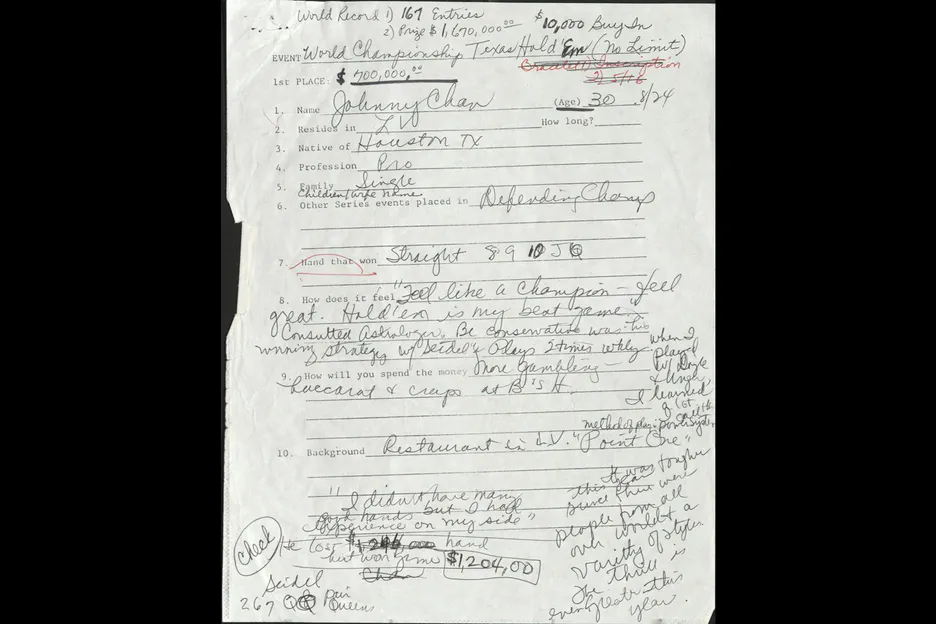 World Record 1) 167 Entries
2) Prize $1,670,000.00
$10,000 Buy In
EVENT World Championship Texas Hold'Em (No Limit)
Bracelet 1) Inscription
2) 5/16
1st PLACE: $ 700,000.00
1. Name Johnny Chan (Age) 30 8/24
2. Resides in LV How long?
3. Native of Houston TX
4. Profession Pro
5. Family Single
Children/Wife Name
6. Other Series events placed in Defending Champ
7. Hand that won Straight 8 9 10 J Q
8. How does it feel "Feel like a Champion – feel
great. Hold'em is my best game."
Consulted Astrologer. Be conservative was his
winning strategy w/ Seidel & Plays 2 times wkly
9. How will you spend the money More Gambling –
baccarat & craps at B's H.
when I
played
w/ Doyle
&
I learned
a lot
method of play
10. Background Restaurant in L.V. "Point One"
"I didn't have many
good hands but I had
experience on my side"
He lost $1,206,000 hand
but won game $1,204,00
Chan
check
Seidel
267 QQ Pair
Queens
It was tougher
this year
since there were
people from all
over world & a
variety of styles.
The thrill is
even greater this
year.